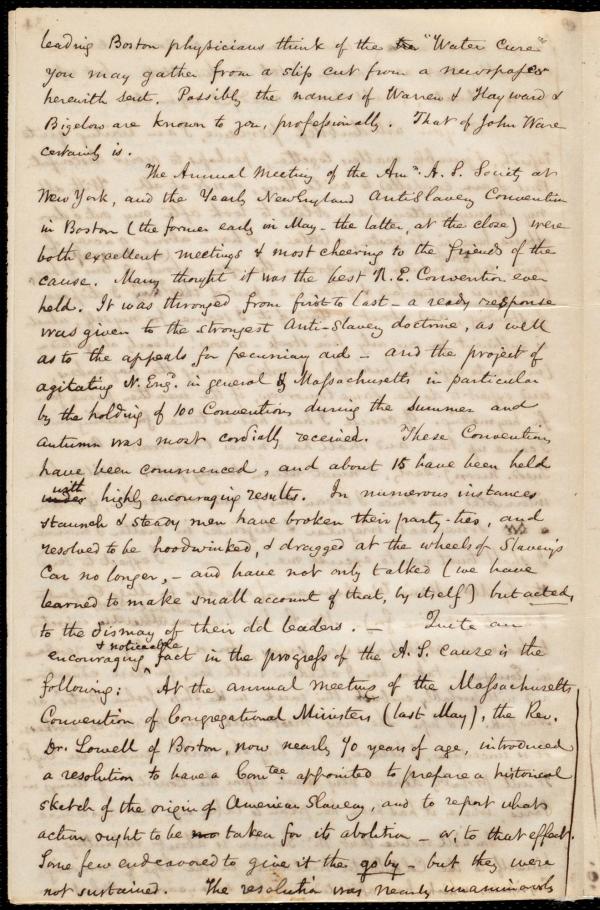 leading Boston physicians think of the "Water Cure"
you may gather from a slip cut from a newspaper
herewith sent. Possibly the names of Warren & Hayward &
Bigelow are known to you, professionally. That of John Ware
certainly is.
The Annual Meeting of the Amn. A. S. Society at
New York, and the Yearly New England AntiSlavery Convention
in Boston (the former early in May - the latter, at the close) were
both excellent meetings & most cheering to the friends of the
cause. Many thought it was the best N. E. Convention ever
held. It was thronged from first to last - a ready response
was given to the strongest Anti-Slavery doctrine, as well
as to the appeals for pecuniary aid - and the project of
agitating N. Eng. in general & Massachusetts in particular
by the holding of 100 Conventions during the Summer and
Autumn was most cordially received. These Conventions
have been commenced, and about 15 have been held
with
under highly encouraging results. In numerous instances
staunch & steady men have broken their party-ties, and
resolved to be hoodwinked, & dragged at the wheels of Slavery's
Car no longer, - and have not only talked (we have
learned to make small account of that, by itself) but acted,
to the dismay of their old leaders. - Quite an
& noticeable
encouraging ^ fact in the progress of the A. S. cause is the
following: At the annual meeting of the Massachusetts
Convention of Congregational Ministers (last May), the Rev.
Dr. Lowell of Boston, now nearly 70 years of age, introduced
a resolution to have a Comtee. appointed to prepare a historical
sketch of the origin of American Slavery, and to report what
action ought to be taken for its abolition - or, to that effect.
Some few endeavored to give it the go by - but they were
not sustained. The resolution was nearly unanimously